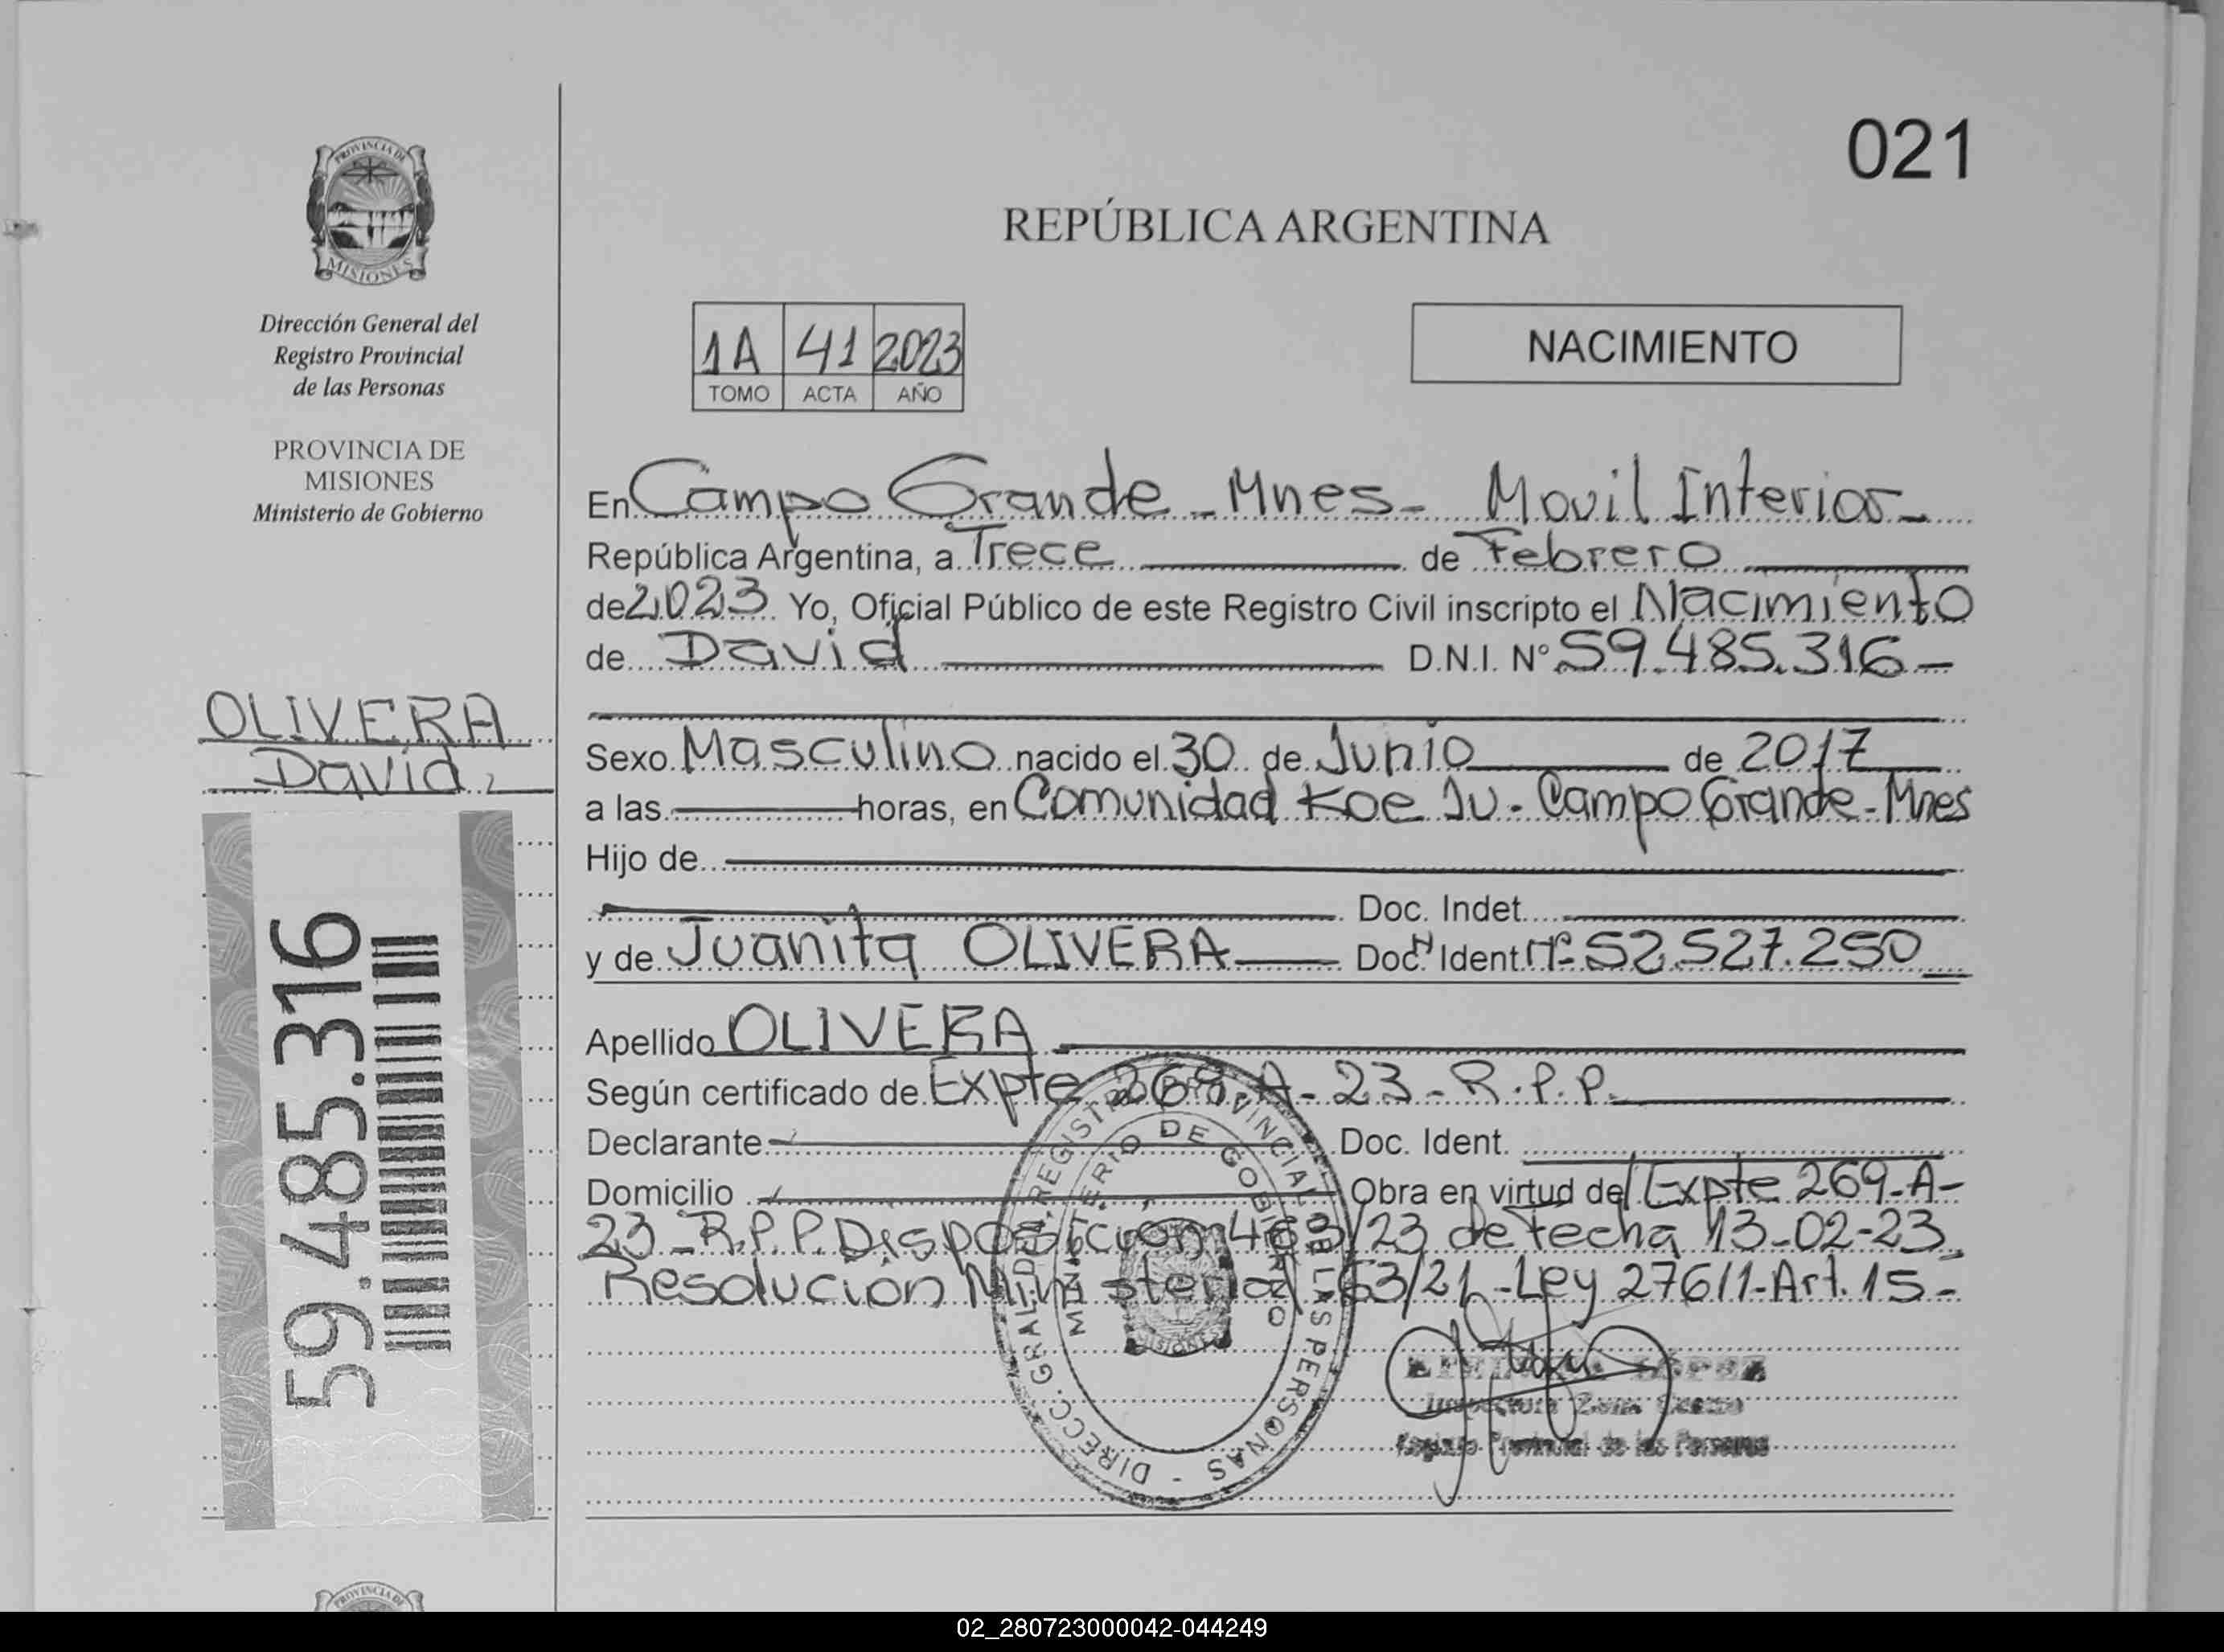 021
REPÚBLICA ARGENTINA
PROVINCIA DE
MISIONES
Dirección General del
Registro Provincial
de las Personas
PROVINCIA DE
MISIONES
Ministerio de Gobierno
1A 41 2023
TOMO ACTA AÑO
NACIMIENTO
En Campo Grande - Mnes - Movil Interior -
República Argentina, a Trece de Febrero
de 2023 Yo, Oficial Público de este Registro Civil inscripto el Nacimiento
de David D.N.I. N° 59.485.316 -
OLIVERA
David
Sexo Masculino nacido el 30 de Junio de 2017
a las horas, en Comunidad Koe Ju - Campo Grande - Mnes
Hijo de
Doc. Indet.
y de Juanita OLIVERA Doc. Ident. Nº 52.527.250
Apellido OLIVERA
Según certificado de Expte 269-A-23-R.P.P.
Declarante Doc. Ident.
Domicilio Obra en virtud del Expte 269-A-
23-R.P.P. Disposición 463/23 de fecha 13-02-23
Resolución Ministerial 63/21 - Ley 27611 - Art. 15 -
59.485.316
DIRECC. GRAL. DEL REGISTRO PROVINCIAL DE LAS PERSONAS -
MINISTERIO DE GOBIERNO
MISIONES
LOPEZ
Inspectora Zona Centro
Registro Provincial de las Personas
PROVINCIA DE
02_280723000042-044249